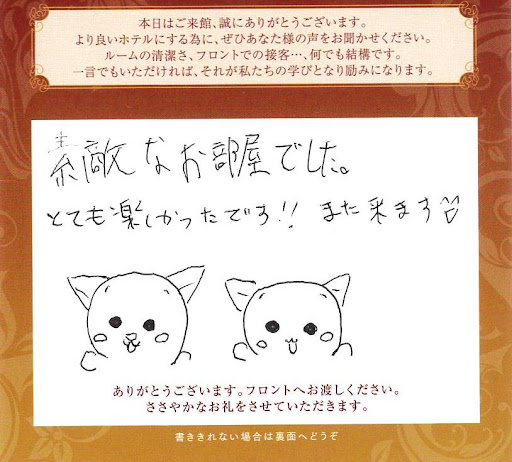 本日はご来館、誠にありがとうございます。
より良いホテルにする為に、ぜひあなた様の声をお聞かせください。
ルームの清潔さ、フロントでの接客…、何でも結構です。
一言でもいただければ、それが私たちの学びとなり励みになります。
素敵なお部屋でした。
とても楽しかったです!! また来ます
ありがとうございます。フロントへお渡しください。
ささやかなお礼をさせていただきます。
書ききれない場合は裏面へどうぞ